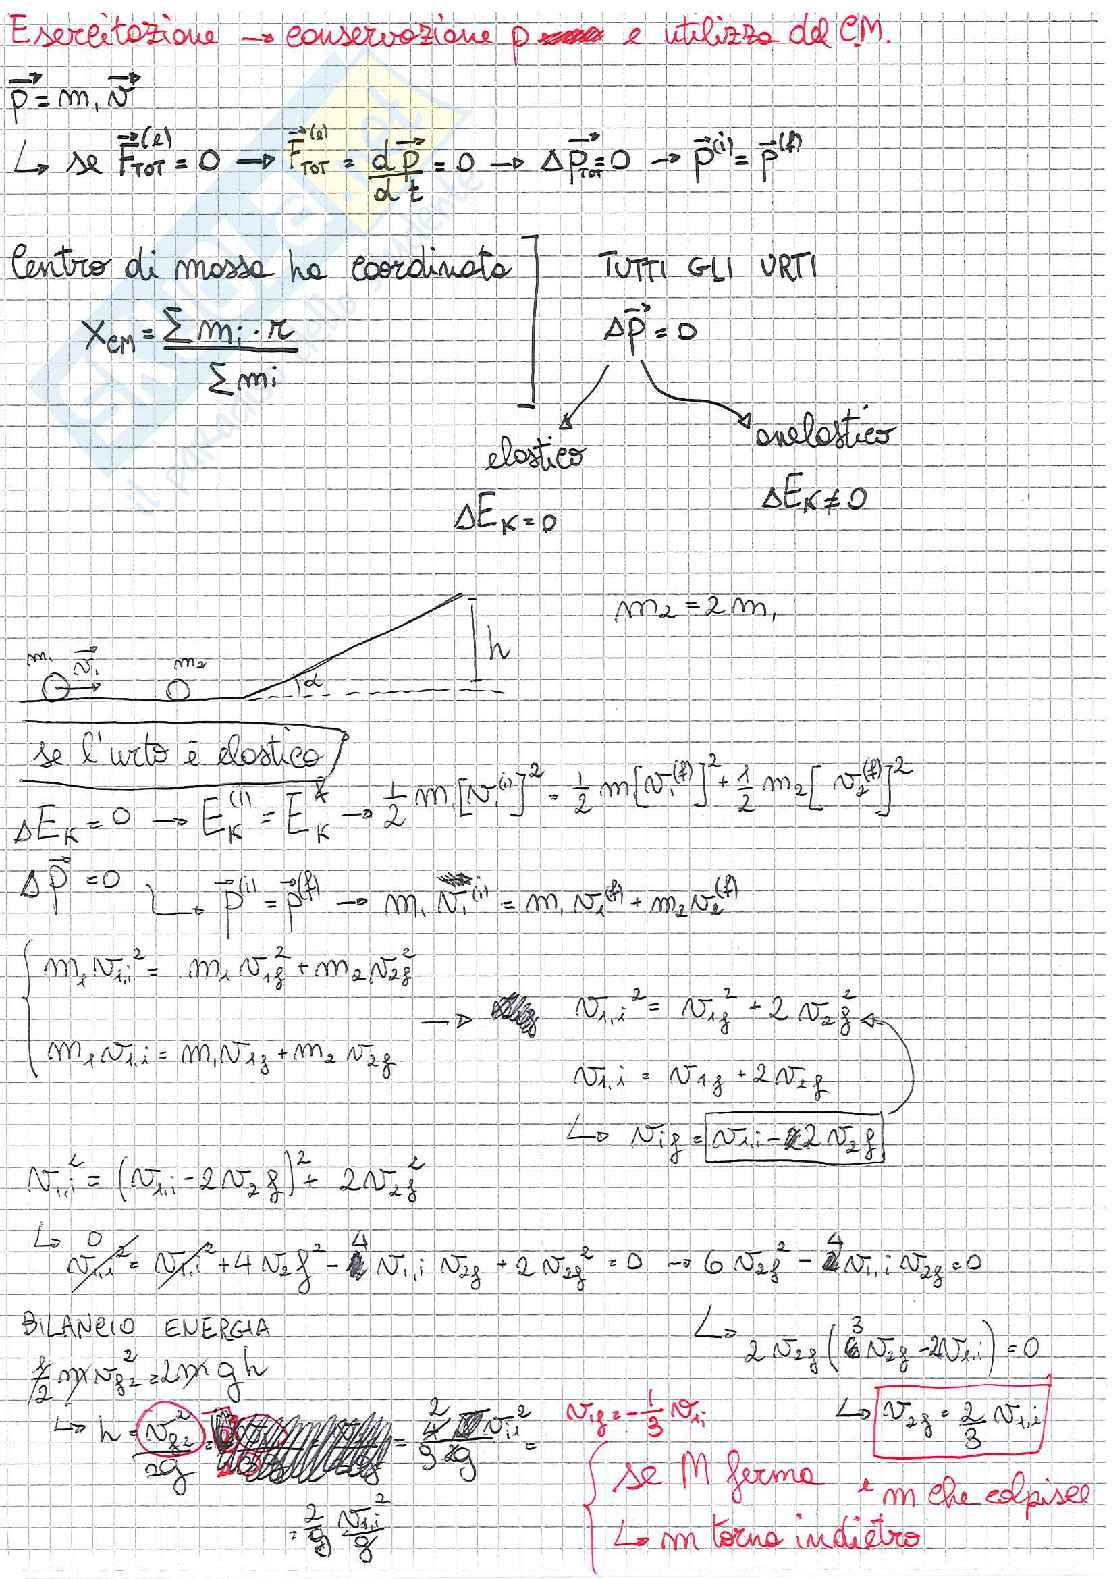 Esercitazione → conservazione p e utilizzo del C.M.
p⃗ = m₁ v⃗
↳ se F⃗_TOT^(e) = 0 → F⃗_TOT^(e) = dp⃗/dt = 0 → Δp⃗_TOT = 0 → p⃗^(i) = p⃗^(f)
Centro di massa ha coordinata
X_CM = Σ mi · r / Σ mi
TUTTI GLI URTI
Δp⃗ = 0
elastico
ΔE_K = 0
anelastico
ΔE_K ≠ 0
m₂ = 2 m₁
m₁ v⃗₁ m₂ α h
se l'urto è elastico
ΔE_K = 0 → E_K^(i) = E_K^f → 1/2 m₁ [v₁^(i)]² = 1/2 m₁ [v₁^(f)]² + 1/2 m₂ [v₂^(f)]²
Δp⃗ = 0
↳ p⃗^(i) = p⃗^(f) → m₁ v₁^(i) = m₁ v₁^(f) + m₂ v₂^(f)
m₁ v₁,i² = m₁ v₁f² + m₂ v₂f²
m₁ v₁,i = m₁ v₁f + m₂ v₂f
→ v₁,i² = v₁f² + 2 v₂f²
v₁,i = v₁f + 2 v₂f
↳ v₁f = v₁,i - 2 v₂f
v₁,i² = (v₁,i - 2 v₂f)² + 2 v₂f²
↳ 0 v₁,i² = v₁,i² + 4 v₂f² - 4 v₁,i v₂f + 2 v₂f² = 0 → 6 v₂f² - 4 v₁,i v₂f = 0
↳ 2 v₂f (3 v₂f - 2 v₁,i) = 0
↳ v₂f = 2/3 v₁,i
BILANCIO ENERGIA
1/2 m v_f2² = 2m g h
↳ h = v_f2² / 2g = 4 2 v₁,i² / 9 2g =
= 2/9 v₁,i² / g
v₁f = - 1/3 v₁,i
se M ferma e m che colpisce
↳ m torna indietro